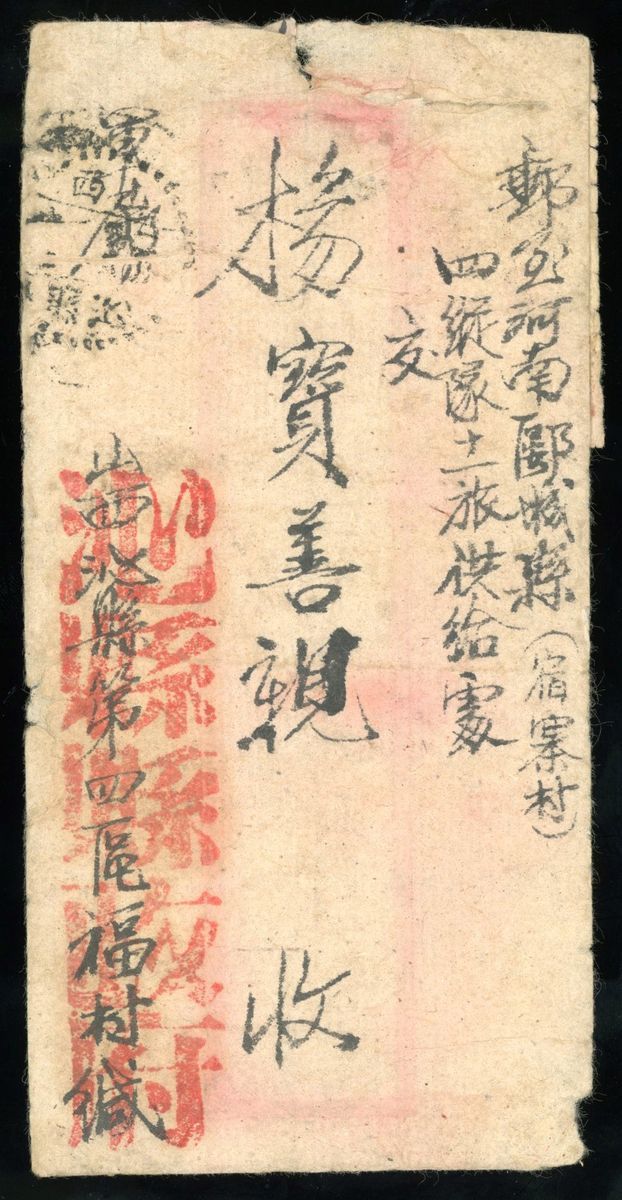 郵至河南郾城縣(宿寨村)
四縱隊十一旅供給處
交
楊寶善親收
山西沁縣第四區福村緘